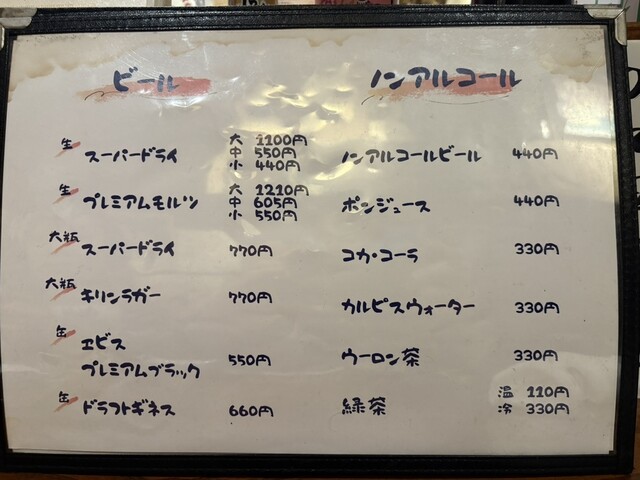 ビール
生 スーパードライ 大 1100円
中 550円
小 440円
生 プレミアムモルツ 大 1210円
中 605円
小 550円
大瓶 スーパードライ 770円
大瓶 キリンラガー 770円
缶 エビス
プレミアムブラック 550円
缶 ドラフトギネス 660円
ノンアルコール
ノンアルコールビール 440円
ポンジュース 440円
コカ・コーラ 330円
カルピスウォーター 330円
ウーロン茶 330円
緑茶 温 110円
冷 330円